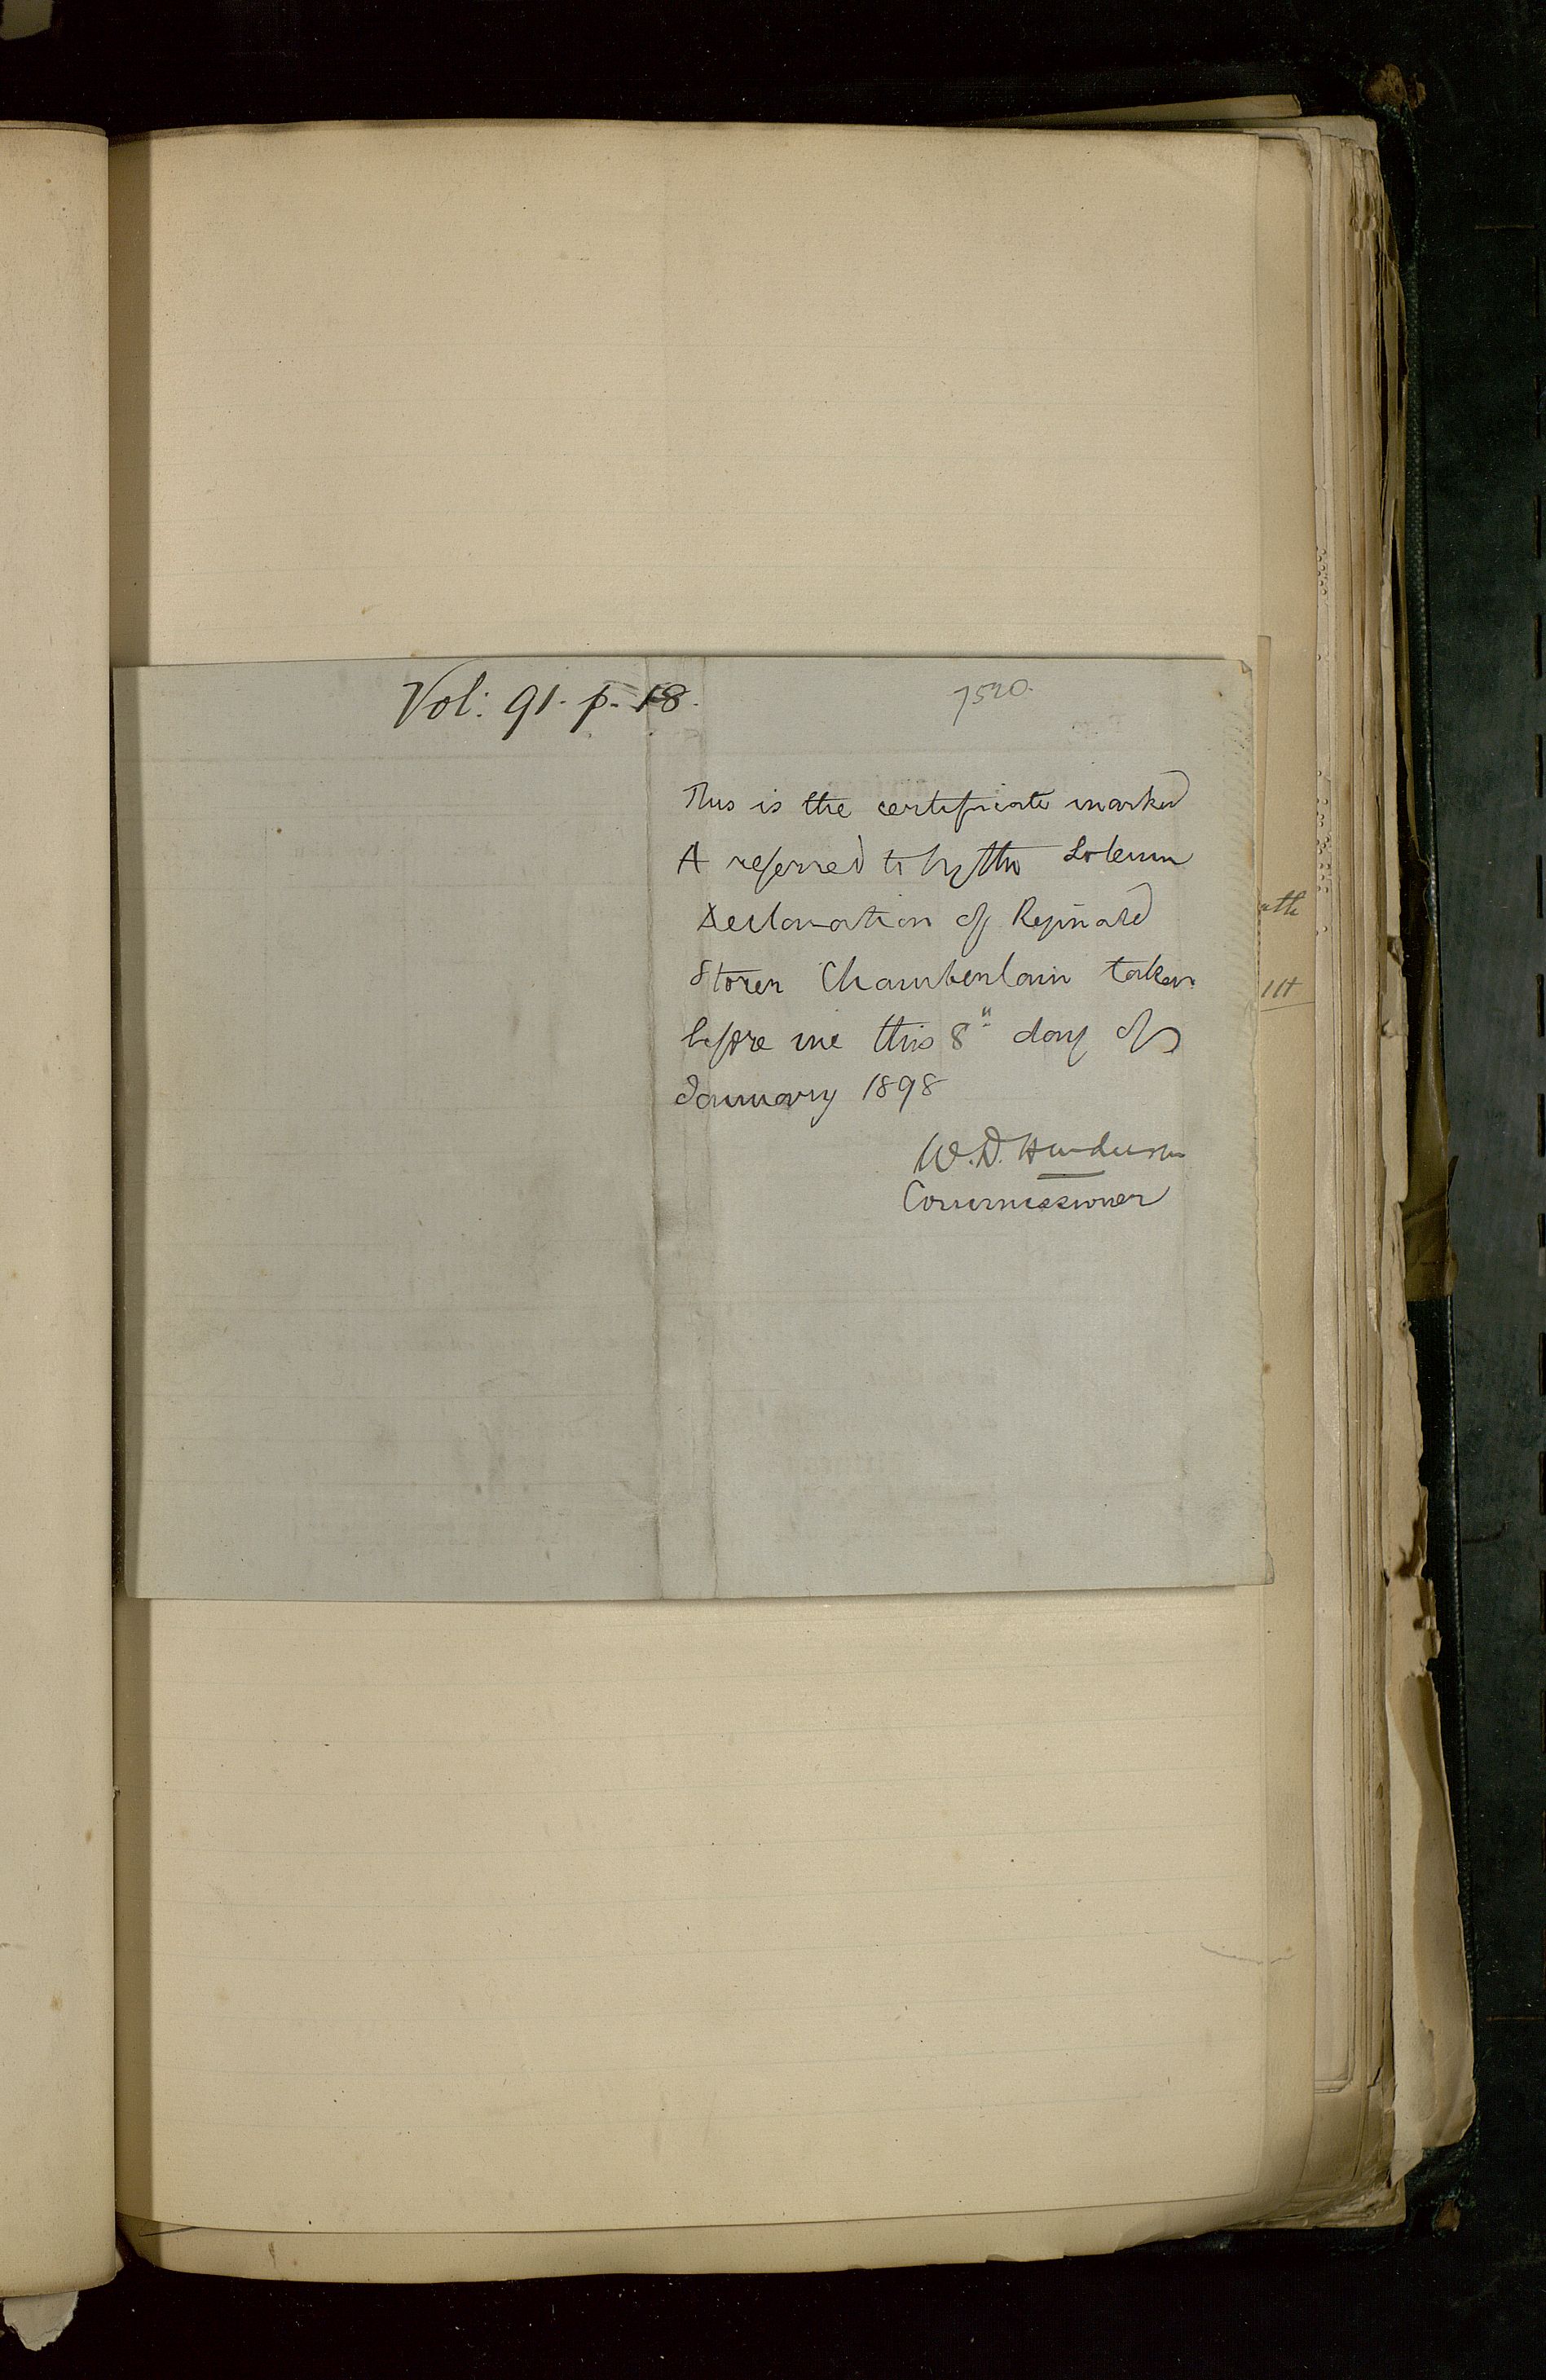 Vol: 91. p. 18.
7520.
This is the certificate marked
A referred to by the Solemn
Declaration of Reginald
Storer Chamberlain taken
before me this 8" day of
January 1898
W. D. Henderson
Commissioner